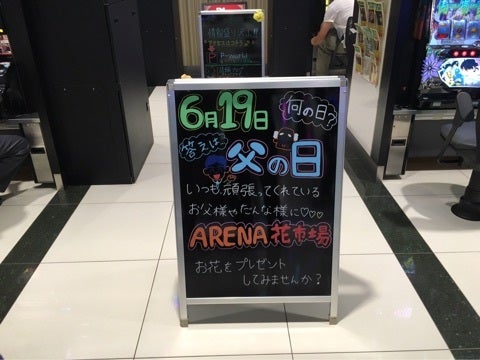 6月19日
何の日?
答えは
父の日
いつも頑張ってくれている
お父様やだんな様に♡♡♡
ARENA花市場
お花をプレゼント
してみませんか?